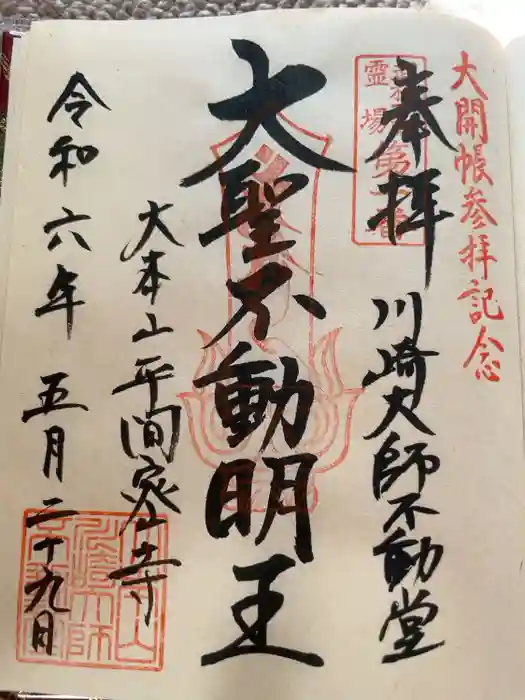 大開帳参拝記念
奉拝
川崎大師不動堂
大聖不動明王
大本山平間寺
令和六年五月二十九日
霊場